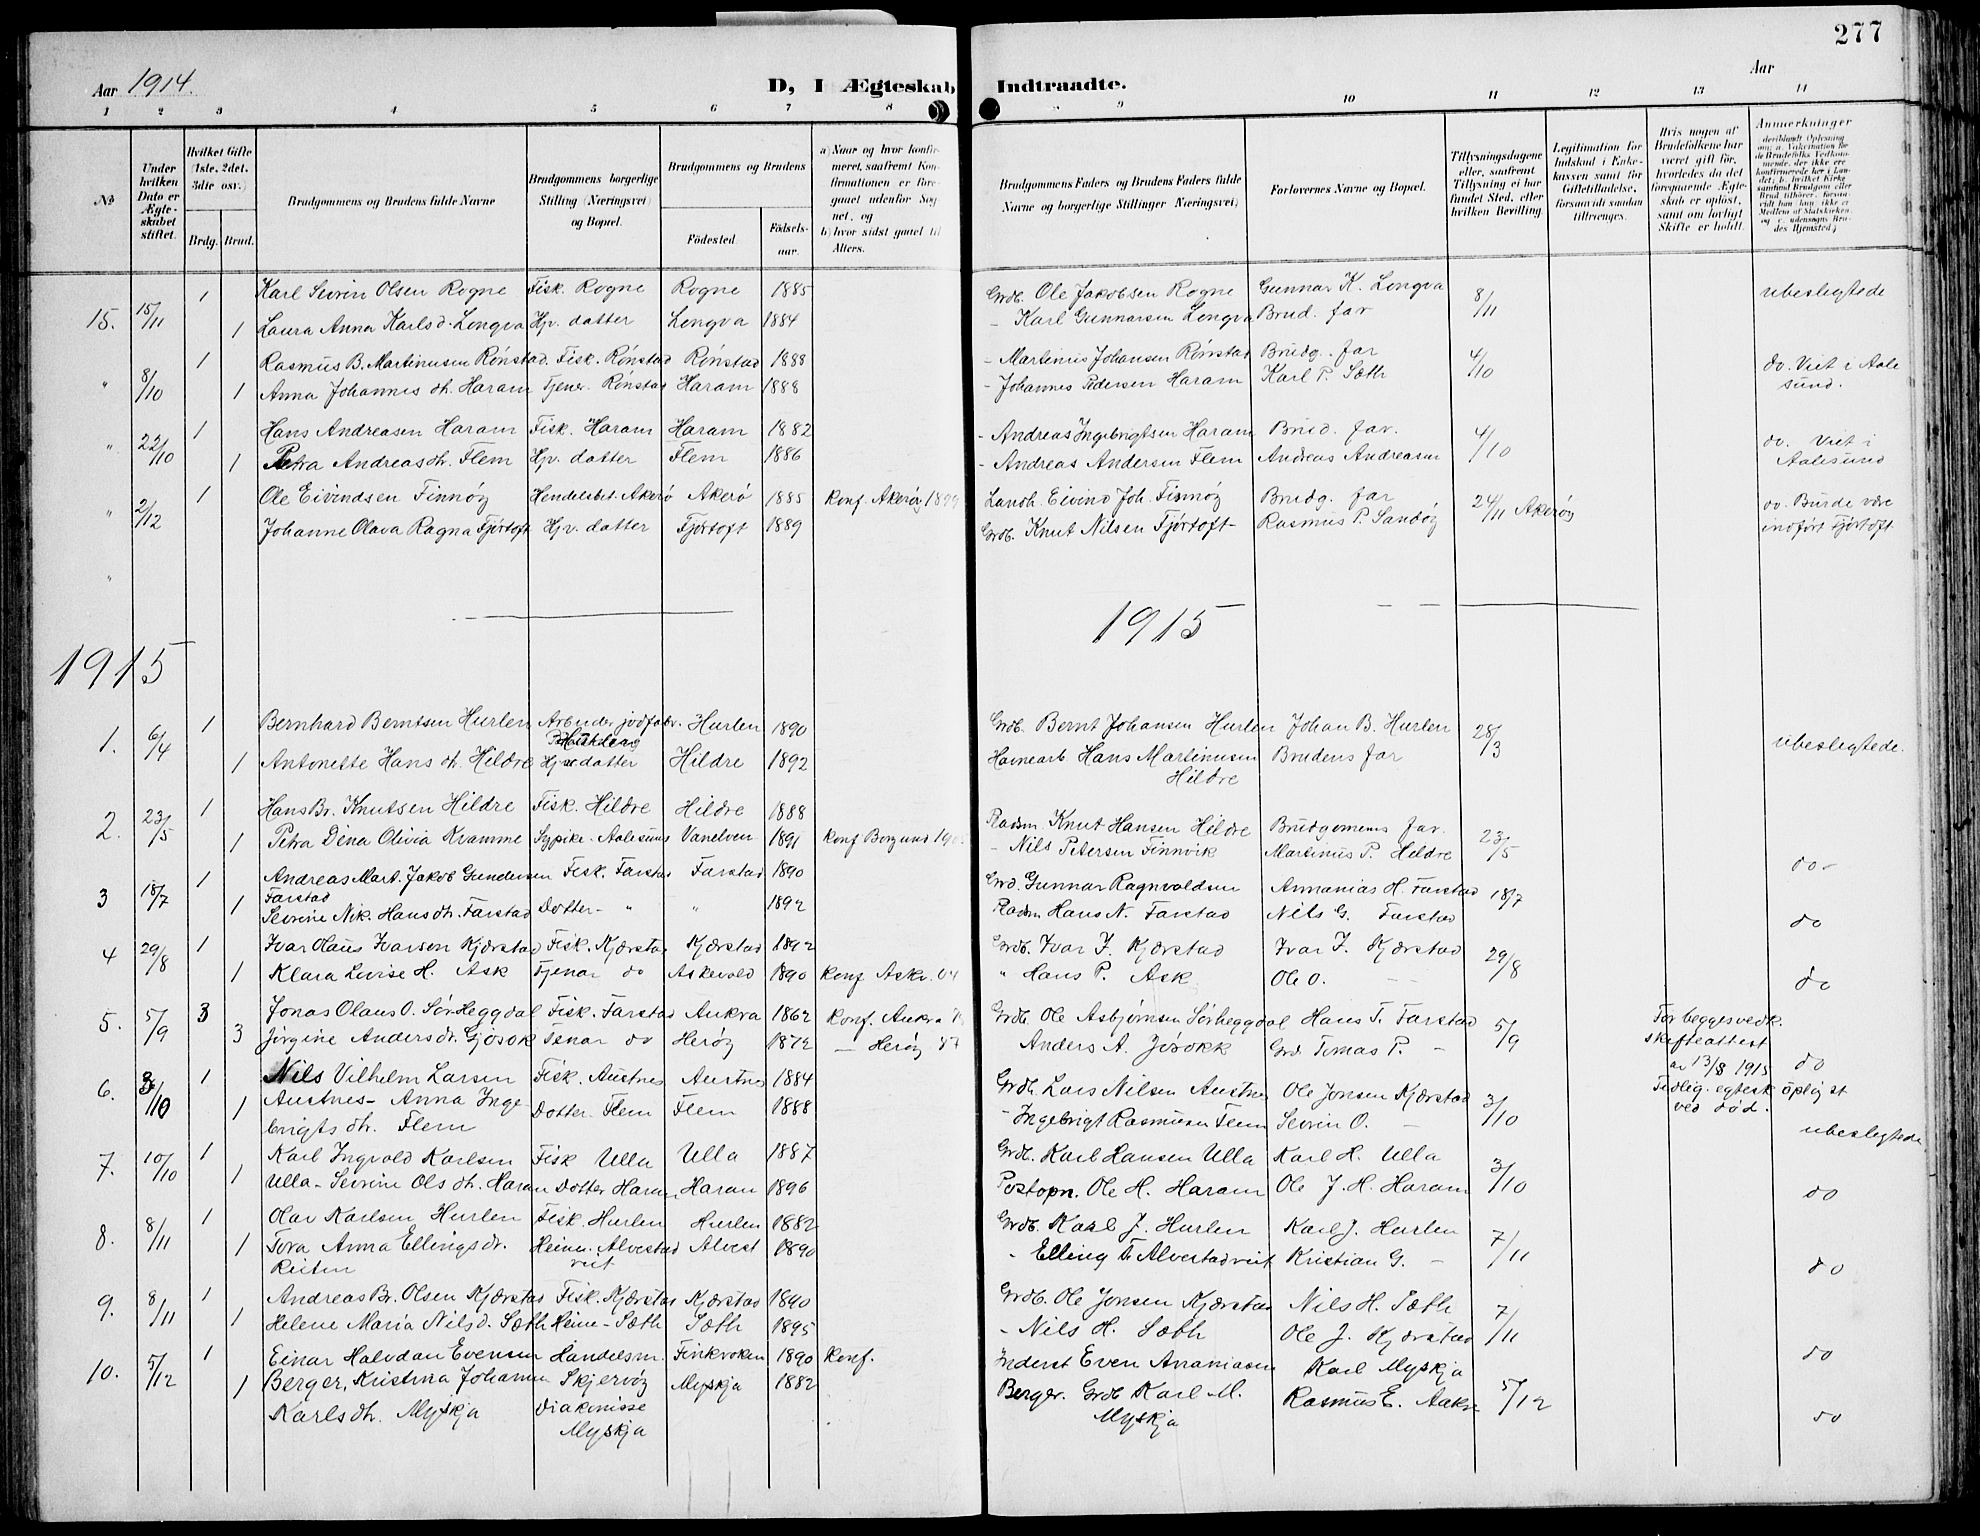 277
Aar 1914.
D, I Ægteskab Indtraadte.
Aar
1 2 3 4 5 6 7 8 9 10 11 12 13 14
No
Under hvilken Dato er Ægteskabet stiftet.
Hvilket Gifte (1ste, 2det, 3die osv.)
Brdg. Brud.
Brudgommens og Brudens fulde Navne
Brudgommens borgerlige Stilling (Næringsvei) og Bopæl.
Brudgommens og Brudens
Födested. Födselsaar.
a) Naar og hvor konfirmeret, saafremt Konfirmationen er foregaaet udenfor Sognet, og
b) hvor sidst gaaet til Alters.
Brudgommens Faders og Brudens Faders fulde Navne og borgerlige Stillinger (Næringsvei)
Forlovernes Navne og Bopæl.
Tillysningsdagene eller, saafremt Tillysning ei har fundet Sted, efter hvilken Bevilling.
Legitimation for Indskud i Enkekassen samt for Giftetilladelse, forsaavidt saadan tiltrænges.
Hvis nogen af Brudefolkene har været gift før, hvorledes da det foregaaende Ægteskab er opløst, samt om lovligt Skifte er holdt.
Anmerkninger
15. 15/11 1 Karl Sevrin Olsen Rogne Fisk. Rogne Rogne 1885 Grdb. Ole Jakobsen Rogne Gunnar K. Longva 8/11 ubeslegtede
1 Laura Anna Karlsd. Longva Hjv. datter Longva 1884 - Karl Gunnarsen Longva Brud. far
" 8/10 1 Rasmus B. Martinusen Rönstad. Fisk. Rönstad Rönstad 1888 - Martinus Johansen Rönstad Brudg. far 4/10 do. Viet i Aale
1 Anna Johannes dh. Haram Tjener. Rönstad Haram 1888 - Johannes Pedersen Haram Karl P. Sæth sund.
" 22/10 1 Hans Andreasen Haram Fisk. Haram Haram 1882 - Andreas Ingebrigtsen Haram Brud. far. 4/10 do. Viet i
1 Petra Andreasdh. Flem Hjv. datter Flem 1886 - Andreas Andersen Flem Andreas Andreasen Aalesund
" 2/12 1 Ole Eivindsen Finnöy Hendelsbet. Akerö Akerö 1885 Konf. Akeröy Landh. Eivind Joh. Finnöy Brudg. far 24/11 Akeröy do. Burde være
Johanne Olava Ragna Fjörtoft Hjv. datter Fjörtoft 1889 Grdb. Knut Nilsen Fjörtoft - Rasmus P. Sandöy indført Fjörtoft
"
1915
1915
1. 6/4 1 Bernhard Berntsen Hurlen Arbeider jodfabr. Hurlen 1890 Grdb. Bernt Johansen Hurlen Johan B. Hurlen 28/3 ubeslegtede.
1 Antonette Hans dh. Hildre Hjv. datter Hildre 1892 Havnearb. Hans Martinusen Brudens far
Hildre
2. 23/5 1 Hans Br. Knutsen Hildre Fisk. Hildre Hildre 1888 Radm. Knut Hansen Hildre Brudgomens far. 23/5
1 Petra Dina Olivia Kvamme Sypike. Aalesund Vanelven 1891 Konf Borgund - Nils Petersen Finnvik Martinus P. Hildre do -
3 18/7 1 Andreas Mart. Jakob Gundersen Fisk. Farstad Farstad 1890 Grd. Gunnar Ragnvaldsen Annanias H. Farstad 18/7
Farstad
1 Sevrine Nik. Hansdh. Farstad Dotter - " " 1892 Radm Hans N. Farstad Nils G. Farstad do
4 29/8 1 Ivar Olaus Ivarsen Kjærstad Fisk. Kjærstad Kjærstad 1892 Grdb. Ivar J. Kjærstad Ivar J. Kjærstad 29/8
1 Klara Lovise H. Ask Tjenar do Askevold 1890 Konf Askv. 04 " Hans P. Ask Ole O. - - do
5. 5/9 3 Jonas Olaus O. Sör-Heggdal Fisk. Farstad Aukra 1862 Konf. Aukra Grdb. Ole Asbjørnsen Sörheggdal Hans T. Farstad 5/9 For begges vedk.
3 Jörgine Anders dr. Gjösok Tenar do Heröy 1872 - Heröy 87 Anders A. Jösokk Grd. Tomas P. - skifteattest
av 13/8 1915 do
6. 3/10 1 Nils Vilhelm Larsen Fisk. Austnes Austnes 1884 Grdb. Lars Nilsen Austnes Ole Jonsen Kjærstad 3/10 Tidlig. egtesk. opløst
1 Austnes - Anna Inge Dotter - Flem Flem 1888 - Ingebrigt Rasmusen Flem Sevrin O. - ved död.
brigts dh. Flem ubeslegtede
7. 10/10 1 Karl Ingvald Karlsen Fisk Ulla Ulla 1887 Grdb. Karl Hansen Ulla Karl H. Ulla 3/10
1 Ulla - Sevrine Ols dh. Haram Dotter Haram Haram 1896 Postopn. Ole H. Haram Ole J. H. Haram do
8. 8/11 1 Olav Karlsen Hurlen Fisk. Hurlen Hurlen 1882 Grdb. Karl J. Hurlen Karl J. Hurlen 7/11
1 Tora Anna Ellings dr. Heime. Alvestad Alvest 1890 - Elling Alvestadveit Kristian G. - do
Reiten veit
9. 8/11 1 Andreas Br. Olsen Kjærstad Fisk. Kjærstad Kjærstad 1890 Grdb. Ole Jonsen Kjærstad Nils H. Sæth 7/11
1 Helene Maria Nilsd. Sæth Heime - Sæth Sæth 1895 - Nils H. Sæth Ole J. Kjærstad do
10. 5/12 1 Einar Halvdan Evensen Handelsm. Finkroken 1890 Konf. Inderst Even Ananiasen Karl Myskja 5/12
1 Berger, Kristina Johanna Skjervöy Myskja 1882 Berger. Grdb Karl M. Rasmus E. Aakre
Karlsdh. Myskja Diakonisse Myskja do
Myskja